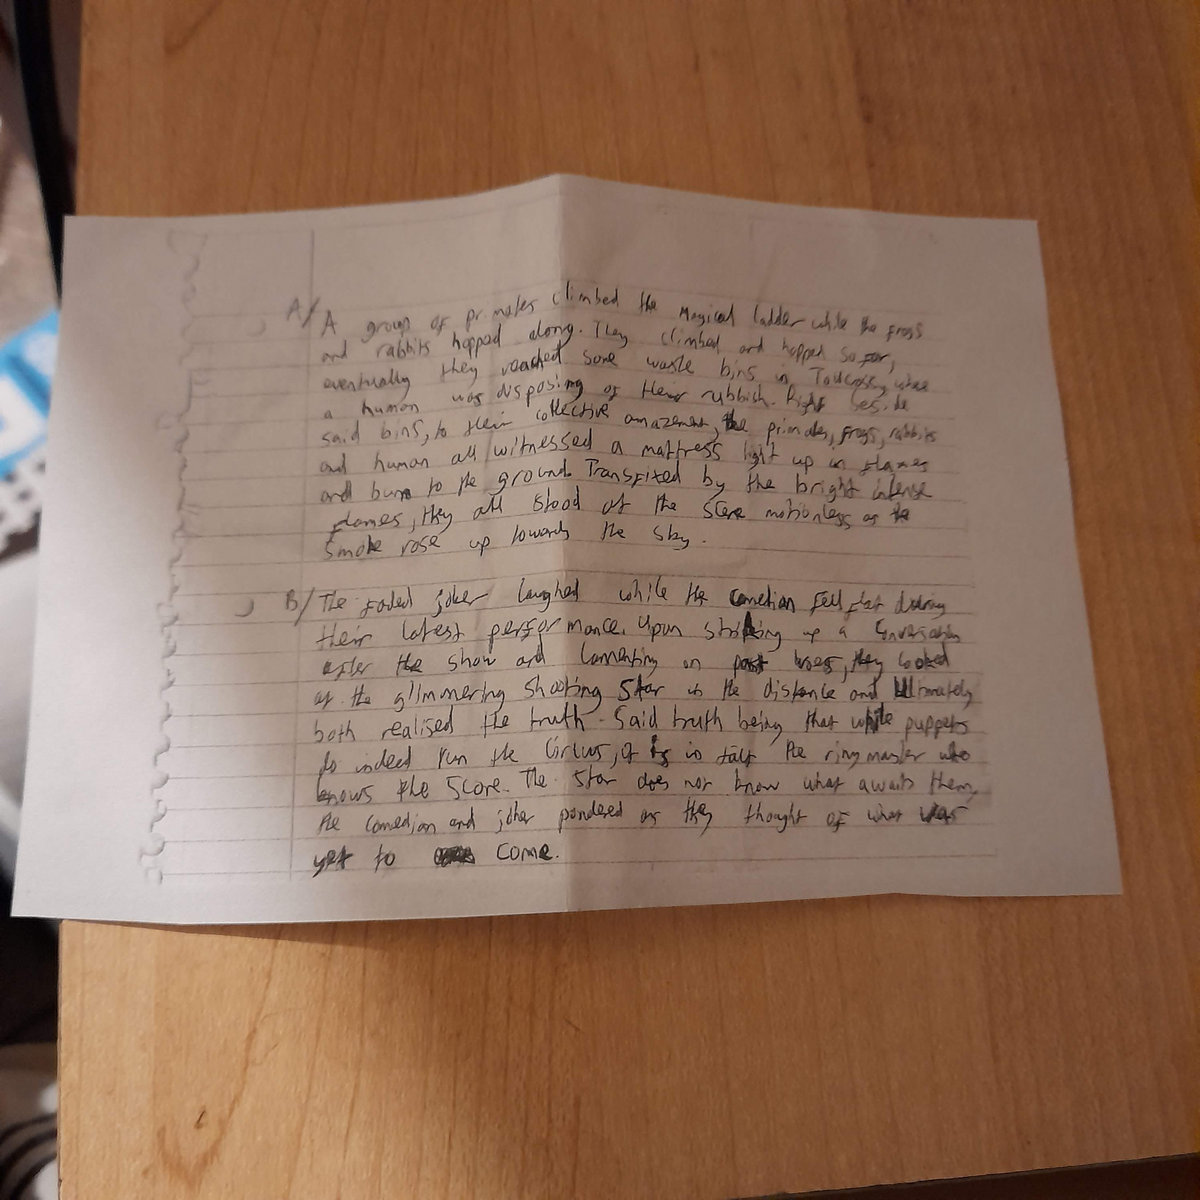 A/ A group of primates climbed the magical ladder while the frogs
and rabbits hopped along. They climbed and hopped so far,
eventually they reached some waste bins in Tollcross, where
a human was disposing of their rubbish. Right beside
said bins, to their collective amazement, the primates, frogs, rabbits
and human all witnessed a mattress light up in flames
and burn to the ground. Transfixed by the bright intense
flames, they all stood at the scene motionless as the
smoke rose up towards the sky.
B/ The faded joker laughed while the comedian fell flat during
their latest performance. Upon striking up a conversation
after the show and lamenting on past woes, they looked
at the glimmering shooting star in the distance and ultimately
both realised the truth. Said truth being that while puppets
do indeed run the circus, it is in fact the ringmaster who
knows the score. The star does not know what awaits them,
the comedian and joker pondered as they thought of what was
yet to come.